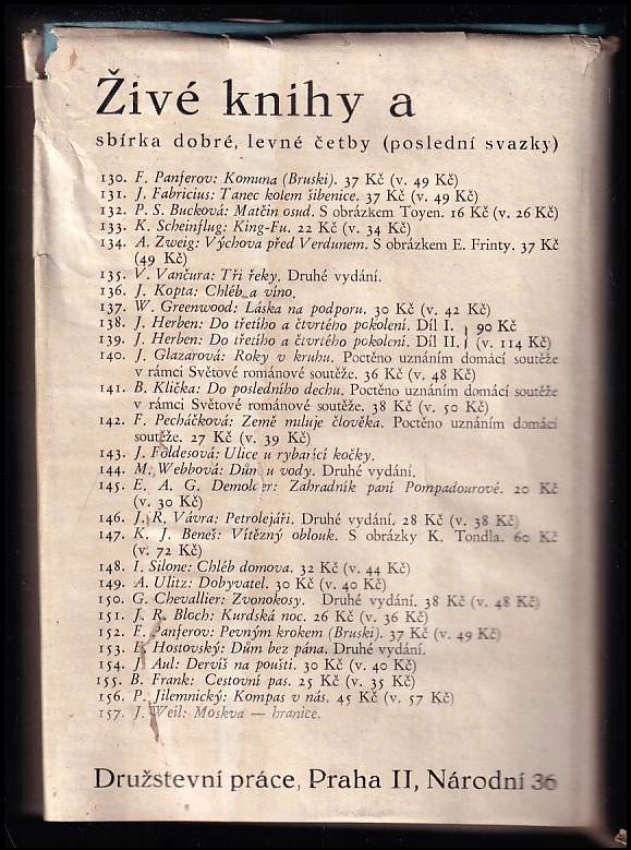 Živé knihy a
sbírka dobré, levné četby (poslední svazky)
130. F. Panferov: Komuna (Bruski). 37 Kč (v. 49 Kč)
131. J. Fabricius: Tanec kolem šibenice. 37 Kč (v. 49 Kč)
132. P. S. Bucková: Matčin osud. S obrázkem Toyen. 16 Kč (v. 26 Kč)
133. K. Scheinflug: King-Fu. 22 Kč (v. 34 Kč)
134. A. Zweig: Výchova před Verdunem. S obrázkem E. Frinty. 37 Kč
(49 Kč)
135. V. Vančura: Tři řeky. Druhé vydání.
136. J. Kopta: Chléb a víno.
137. W. Greenwood: Láska na podporu. 30 Kč (v. 42 Kč)
138. J. Herben: Do třetího a čtvrtého pokolení. Díl I. } 90 Kč
139. J. Herben: Do třetího a čtvrtého pokolení. Díl II. } (v. 114 Kč)
140. J. Glazarová: Roky v kruhu. Poctěno uznáním domácí soutěže
v rámci Světové románové soutěže. 36 Kč (v. 48 Kč)
141. B. Klička: Do posledního dechu. Poctěno uznáním domácí soutěže
v rámci Světové románové soutěže. 38 Kč (v. 50 Kč)
142. F. Pecháčková: Země miluje člověka. Poctěno uznáním domácí
soutěže. 27 Kč (v. 39 Kč)
143. J. Földesová: Ulice u rybařící kočky.
144. M. Webbová: Dům u vody. Druhé vydání.
145. E. A. G. Demolder: Zahradník paní Pompadourové. 20 Kč
(v. 30 Kč)
146. J. R. Vávra: Petrolejáři. Druhé vydání. 28 Kč (v. 38 Kč)
147. K. J. Beneš: Vítězný oblouk. S obrázky K. Tondla. 60 Kč
(v. 72 Kč)
148. I. Silone: Chléb domova. 32 Kč (v. 44 Kč)
149. A. Ulitz: Dobyvatel. 30 Kč (v. 40 Kč)
150. G. Chevallier: Zvonokosy. Druhé vydání. 38 Kč (v. 48 Kč)
151. J. R. Bloch: Kurdská noc. 26 Kč (v. 36 Kč)
152. F. Panferov: Pevným krokem (Bruski). 37 Kč (v. 49 Kč)
153. E. Hostovský: Dům bez pána. Druhé vydání.
154. J. Aul: Dervíš na poušti. 30 Kč (v. 40 Kč)
155. B. Frank: Cestovní pas. 25 Kč (v. 35 Kč)
156. P. Jilemnický: Kompas v nás. 45 Kč (v. 57 Kč)
157. J. Weil: Moskva — hranice.
Družstevní práce, Praha II, Národní 36